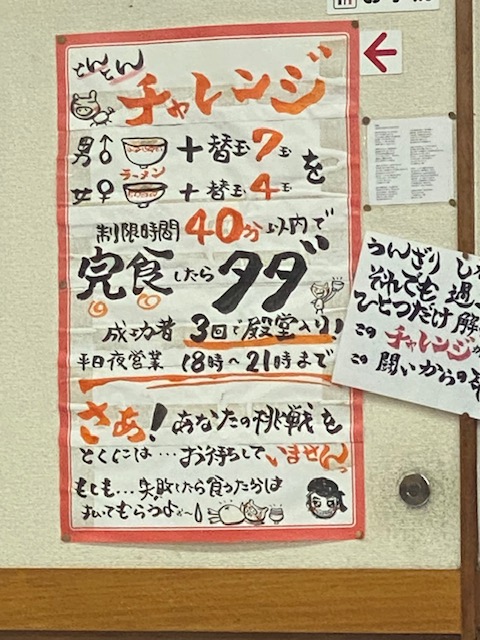 とんとん
チャレンジ
男♂ ラーメン + 替玉 7玉を
女♀ + 替玉 4玉
制限時間 40分以内で
完食したら タダ
成功者 3回で殿堂入り!
平日夜営業 18時〜21時まで
さあ! あなたの挑戦を
とくには…お待ちしていませんっ
もしも…失敗したら食った分は
払いてもらうよぉ〜
うんざり
それでも 過
ひとつだけ 解
この チャレンジか
この 闘いからの